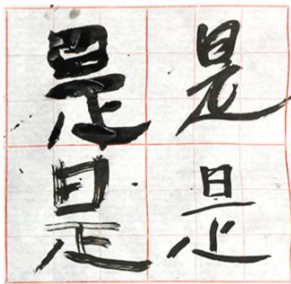 是是
是是